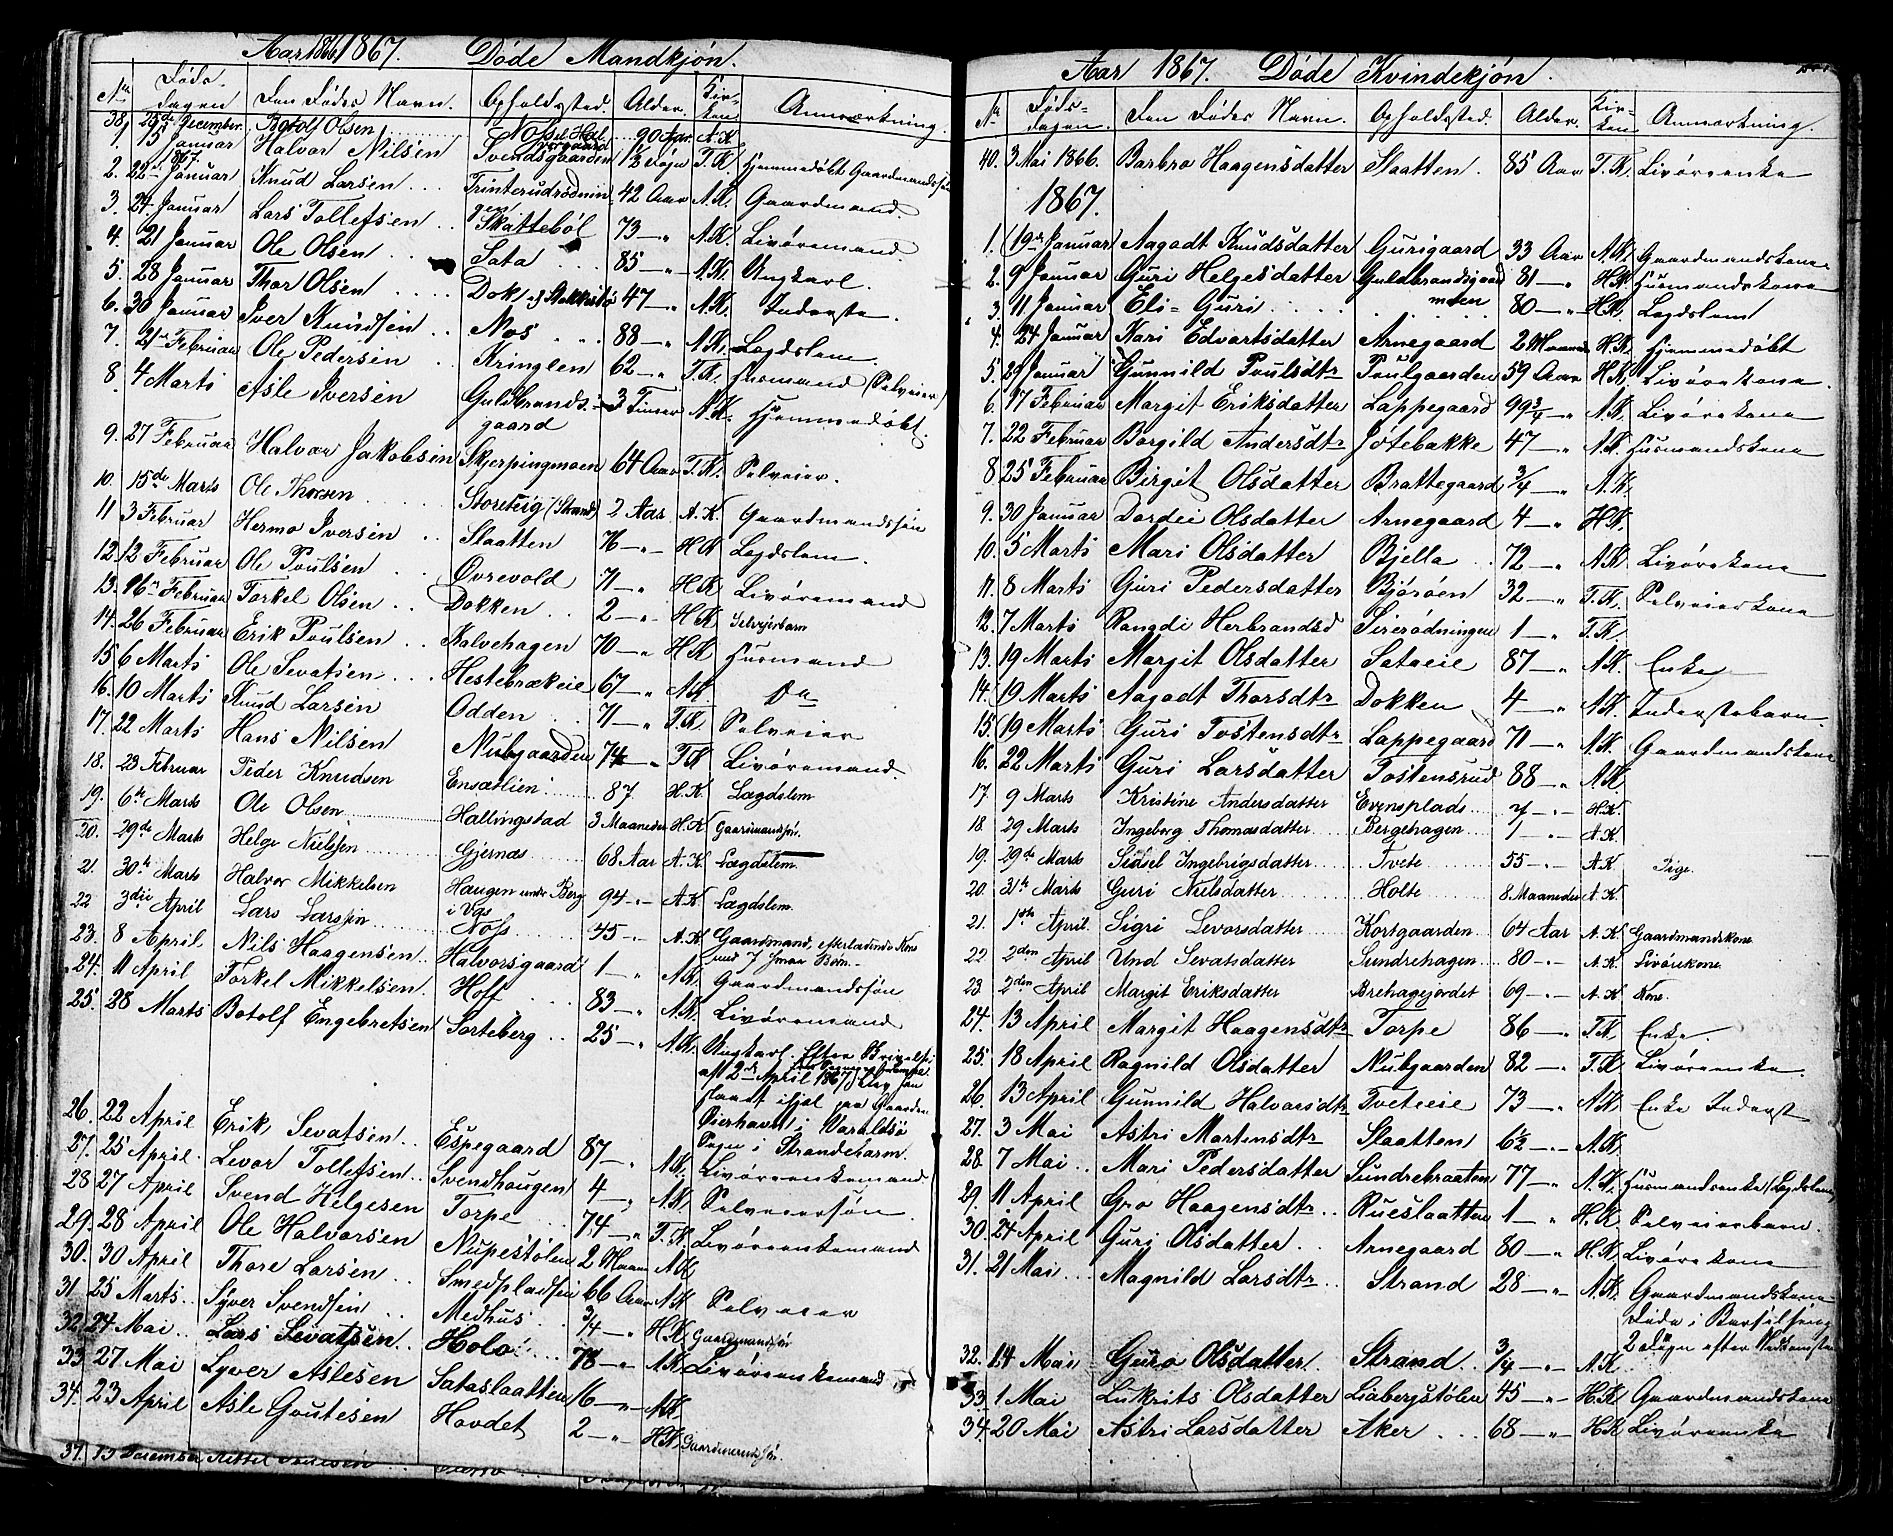 Aar 1866/1867. Døde Mandkjøn.
No Døds-dagen Den Dødes Navn. Opholdssted. Alder. Kir-ken Anmærkning.
38. 25de December Botolf Olsen Noss 90 Aar. A.K
1. 13 Januar 1867. Halvor Nilsen Svendsgaarden 13 Dage T.K. Hjemmedøbt Gaardmandssøn
2. 22de Januar Knud Larsen Trinterudrødningen 42 Aar A.K. Gaardmand.
3. 24 Januar Lars Tollefsen Skattebøl 73 — " A.K. Livøremand.
4. 21 Januar Ole Olsen Sata 85 — " A.K. Ungkarl.
5. 28 Januar Thor Olsen Dok 47 — " A.K. Inderste.
6. 30 Januar Iver Knudsen Nos 88 — " A.K. Legdslem.
7. 21de Februar Ole Pedersen Kringlen 62 — " T.K. Husmand (Selveier)
8. 4 Marts Asle Iversen Guldbrandsgaard 3 Timer A.K. Hjemmedøbt.
9. 27 Februar Halvor Jakobsen Skjerpingmoen 64 Aar T.K. Selveier.
10. 15de Marts Ole Thorsen Storeteig (Strand) 2 Aar A.K. Gaardmandssøn
11 3 Februar Hermo Iversen Slaatten 76 — " H.K Legdslem.
12. 12 Februar Ole Poulsen Øvrevold 71 — " H.K Livøremand
13. 16de Februar Torkel Olsen Dokken 2 — " H.K Selveierbarn
14. 26 Februar Erik Poulsen Kalvehagen 70 — " H.K Husmand
15 6 Marts Ole Sevatsen Hestebrækeie 67 — " A.K Do
16. 10 Marts Knud Larsen Odden 71 — " T.K. Selveier
17. 22 Marts Hans Nilsen Nubgaarden 74 — " T.K Livøremand.
18. 23 Februar Peder Knudsen Ensætlien 87 H.K. Lægdslem
19. 6te Marts Ole Olsen Hallingstad 3 Maaneder H.K Gaardmandssøn.
20. 29de Marts Helge Nielsen Gjernæs 68 Aar A.K. Lægdslem
21. 30te Marts Halvor Mikkelsen Haugen under Berg i Vgs 94 — " A.K Lægdslem.
22 3die April Lars Larssen Noss 45 — " A.K Gaardmand, efterladende Kone med 7 smaa Børn.
23. 8 April Nils Haagensen Halvorsgaard 1 — " A.K Gaardmandssøn
24. 11 April Torkel Mikkelsen Hoff 83 — " A.K. Livøremand
25. 28 Marts Botolf Engebretsen Sorteberg 25 — " A.K. Ungkarl. Efter
aft 2de April 1867)
paa Gaarden
i Varaldsø
Sogn i Strandebarm.
26. 22 April Erik Sevatsen Espegaard 87 — " A.K. Livøreenkemand
27. 25 April. Levor Tollefsen Svendhaugen 4 — " A.K. Selveiersøn.
28 27 April Svend Helgesen Torpe 74 — " T.K. Livøreenkemand
29. 28 April Ole Halvorsen Nupestølen 2 Maan A.K
30. 30 April Thore Larsen Smedpladsen 66 Aar A.K Selveier
31 25 Marts Syver Svendsen Medhus 3/4 — " H.K Gaardmandssøn
32. 24 Mai Lars Sevatsen Holo 78 — " A.K Livøreenkemand
33 27 Mai Syver Aslesen Sataslaatten 16 — " A.K
34. 23 April Asle Goutesen Hovdet 2 — " H.K. Gaardmandssøn.
37. 13 December
Aar 1867. Døde Kvindekjøn.
No Døds-dagen. Den Dødes Navn. Opholdssted. Alder. Kir-ken Anmærkning.
40. 3 Mai 1866. Barbro Haagensdatter Slaatten. 85 Aar T.K. Livøreenke
1867.
1. (19de Januar) Aagodt Knudsdatter Gurigaard 33 Aar A.K. Gaardmandskone.
2. 9 Januar Guri Helgesdatter Guldbrandsgaardmoen 81 — " H.K Husmandskone
3. 11 Januar Eli = Guri 80 — " H.K Legdslem
4. 24 Januar Kari Edvartsdatter Arnegaard 2 Maaned H.K Hjemmedøbt
5. 29 Januar Gunnild Poulsdtr Poulgaarden 59 Aar H.K. Livørekone.
6. 17 Februar Margit Eriksdatter Lappegaard 99 3/4 — " A.K. Livørekone
7. 22 Februar Borgild Andersdtr Jøtebakke 47 — " A.K. Husmandskone
8 25 Februar Birgit Olsdatter Brattegaard 3/4 — " A.K.
9. 30 Januar Dordei Olsdatter Arnegaard 4 — " H.K.
10. 5 Marts Mari Olsdatter Bjella 72 — " A.K. Livørekone
11. 8 Marts Guri Pedersdatter Bjørøen 32 — " T.K. Selveierkone
12. 7 Marts Rangdi Herbrandsd Sirerødningen 1 — " T.K.
13. 19 Marts Margit Olsdatter Sataeie 87 — " A.K. Enke
14. (19 Marts Aagodt Thorsdtr Dokken 4 — " A.K. Inderstebarn.
15. (19 Marts Guri Tostensdtr Lappegaard 71 — " A.K. Gaardmandskone
16. 22 Marts Guri Larsdatter Tostensrud 88 — " A.K
17 9 Marts Kristine Andersdatter Evensplads 7 — " H.K.
18 29 Marts Ingeborg Thomasdatter Bergehagen 1 — " A.K
19. 29de Marts Sidsel Ingebrigsdatter Tvete 55 — " A.K Pige.
20 31te Marts Guri Nielsdatter Holte 8 Maaneder A.K.
21. 1ste April Sigri Levorsdatter Kortgaarden 64 Aar A.K Gaardmandskone
22 2den April Und Sevatsdatter Sundrehagen 80 — " A.K Livørekone.
23. 2den April Margit Eriksdatter Brehagejordet 69 — " A.K Kone.
24. 13 April Margit Haagensdtr Torpe 86 — " T.K Enke.
25. 18 April Ragnild Olsdatter Nubgaarden 82 — " T.K Livøreenke.
26. 13 April Gunnild Halvorsdtr Tveteeie 73 — " A.K Enke Inderst
27. 3 Mai Astri Martensdtr Slaatten 6 1/2 — " A.K.
28. 7 Mai Mari Pedersdatter Sundrebraaten 77 — " A.K. Husmandsenke (Legdslem)
29. 11 April Gro Haagensdtr Rueslaatten 1 — " H.K Selveierbarn.
30. 24 April Guri Olsdatter Arnegaard 80 — " H.K Livørekone
31. 21 Mai Magnild Larsdtr Strand 28 — " A.K. Gaardmandskone
Døde i Barselseng
2 Døgn efter Nedkomsten
32. 14 Mai Guro Olsdatter Strand 3/4 — " A.K.
33. 1 Mai Lukrits Olsdatter Liabergstølen 45 — " H.K Gaardmandskone
34. 20 Mai Astri Larsdatter Aker 68 — " H.K Livøreenke